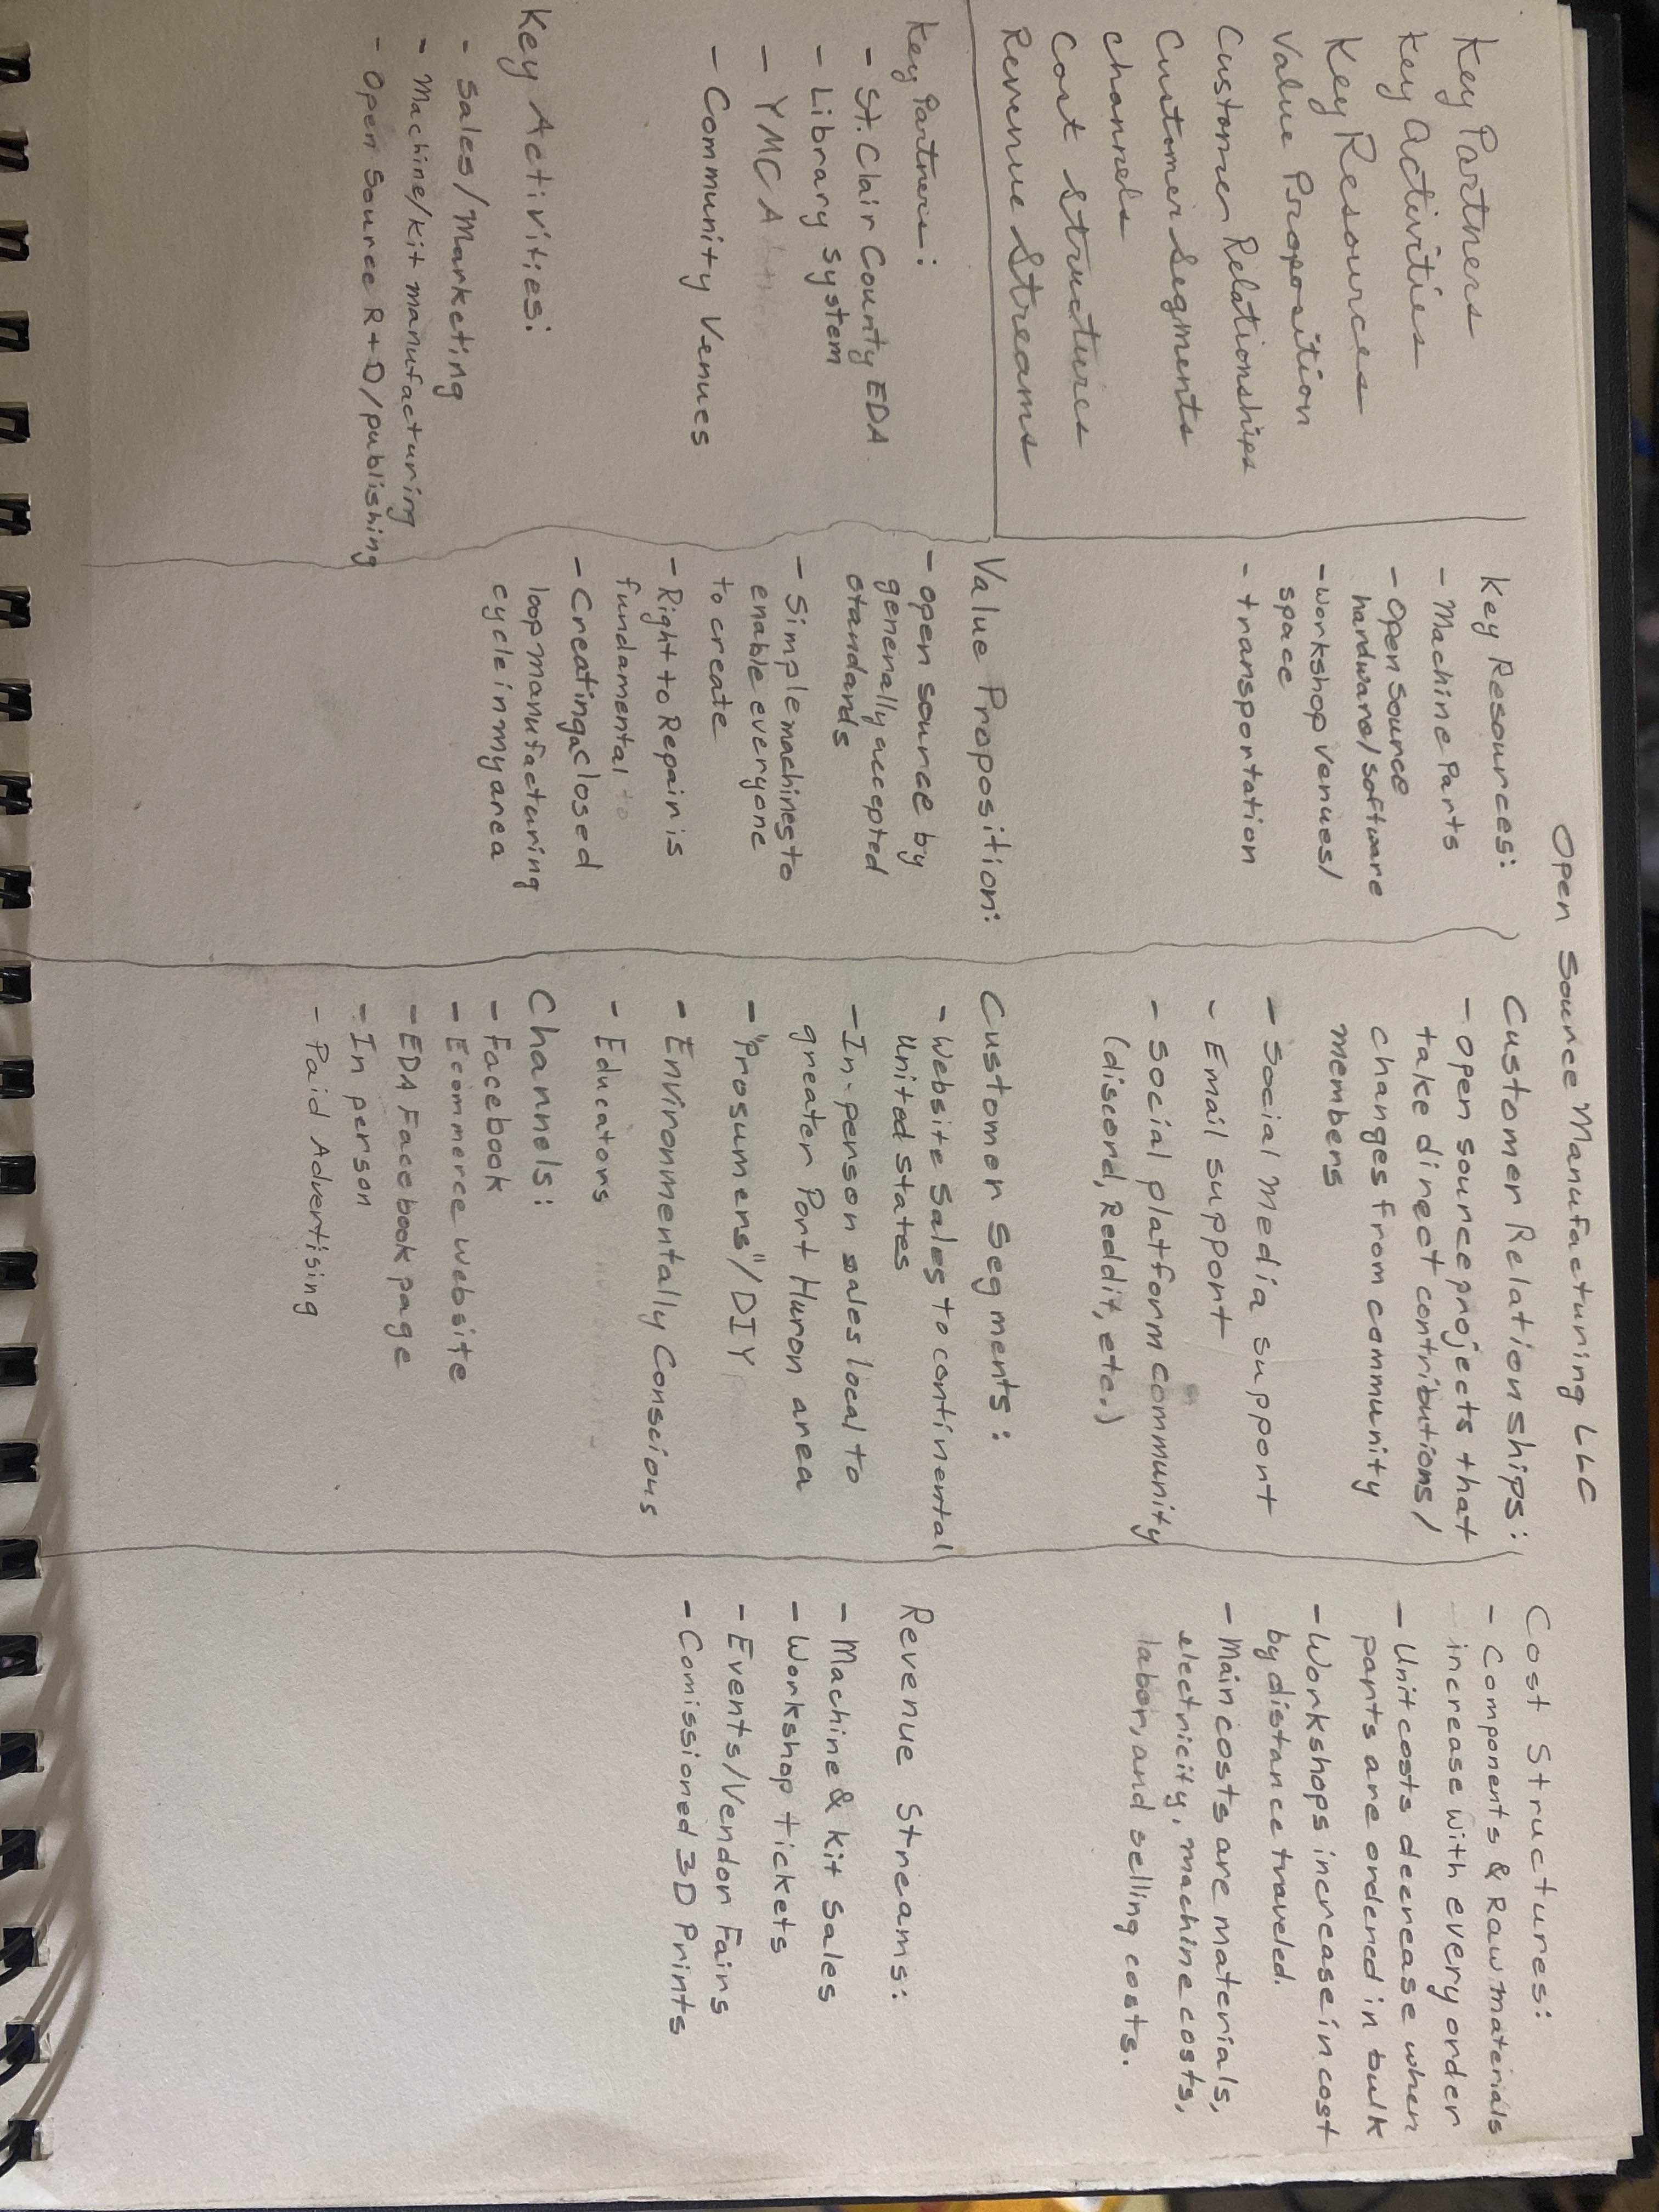 Open Source Manufacturing LLC
Key Partners
Key Activities
Key Resources
Value Proposition
Customer Relationships
Customer Segments
Channels
Cost Structures
Revenue Streams
Key Partners:
- St. Clair County EDA
- Library System
- YMCA
- Community Venues
Key Activities:
- Sales/Marketing
- Machine/kit manufacturing
- Open Source R+D/publishing
Key Resources:
- Machine Parts
- Open Source
hardware/software
- Workshop venues/
space
- transportation
Value Proposition:
- open source by
generally accepted
standards
- Simple machines to
enable everyone
to create
- Right to Repair is
fundamental
- Creating a closed
loop manufacturing
cycle in my area
Customer Relationships:
- Open source projects that
take direct contributions/
changes from community
members
- Social Media support
- Email support
- Social platform community
(discord, Reddit, etc.)
Customer Segments:
- Website Sales to continental
United States
- In-person sales local to
greater Port Huron area
- "Prosumers"/DIY
- Environmentally Conscious
- Educators
Channels:
- Facebook
- Ecommerce website
- EDA Facebook page
- In person
- Paid Advertising
Cost Structures:
- Components & Raw materials
increase with every order
- Unit costs decrease when
parts are ordered in bulk
- Workshops increase in cost
by distance traveled.
- Main costs are materials,
electricity, machine costs,
labor, and selling costs.
Revenue Streams:
- Machine & kit Sales
- Workshop tickets
- Events/Vendor Fairs
- Comissioned 3D Prints